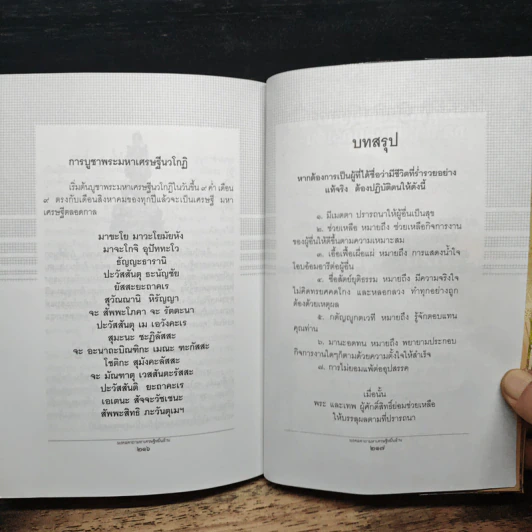 การบูชาพระมหาเศรษฐีนวโกฏิ
เริ่มต้นบูชาพระมหาเศรษฐีนวโกฏิในวันขึ้น ๙ ค่ำ เดือน
๙ ตรงกับเดือนสิงหาคมของทุกปีแล้วจะเป็นเศรษฐี มหา
เศรษฐีตลอดกาล
มาชะโย มาวะโยมัยหัง
มาจะโกจิ อุปัททะโว
ธัญญะธารานิ
ปะวัสสันตุ ธะนัญชัย
ยัสสะยะถาคเร
สุวัณณานิ หิรัญญา
จะ สัพพะโภคา จะ รัตตะนา
ปะวัสสันตุ เม เอวังคะเร
สุมะนะ ชะฏิลัสสะ
จะ อะนาถะบิณฑิกะ เมณะ ฑะกัสสะ
โชติกะ สุมังคะลัสสะ
จะ มัณฑาตุ เวสสันตะรัสสะ
ปะวัสสันติ ยะถาคะเร
เอเตนะ สัจจะวัชเชนะ
สัพพะสิทธิ ภะวันตุเมฯ
๒๑๖
บทสรุป
หากต้องการเป็นผู้ที่ได้ชื่อว่ามีชีวิตที่ร่ำรวยอย่าง
แท้จริง ต้องปฏิบัติตนให้ดังนี้
๑. มีเมตตา ปรารถนาให้ผู้อื่นเป็นสุข
๒. ช่วยเหลือ หมายถึง ช่วยเหลือกิจการงาน
ของผู้อื่นให้ดีขึ้นตามความเหมาะสม
๓. เอื้อเฟื้อเผื่อแผ่ หมายถึง การแสดงน้ำใจ
โอบอ้อมอารีต่อผู้อื่น
๔. ซื่อสัตย์ยุติธรรม หมายถึง มีความจริงใจ
ไม่คิดทรยศคดโกง และหลอกลวง ทำทุกอย่างถูก
ต้องด้วยเหตุผล
๕. กตัญญูกตเวที หมายถึง รู้จักตอบแทน
คุณท่าน
๖. มานะอดทน หมายถึง พยายามประกอบ
กิจการงานใดๆก็ตามด้วยความตั้งใจให้สำเร็จ
๗. การไม่ยอมแพ้ต่ออุปสรรค
เมื่อนั้น
พระ และเทพ ผู้ศักดิ์สิทธิ์ย่อมช่วยเหลือ
ให้บรรลุผลตามที่ปรารถนา
๒๑๗